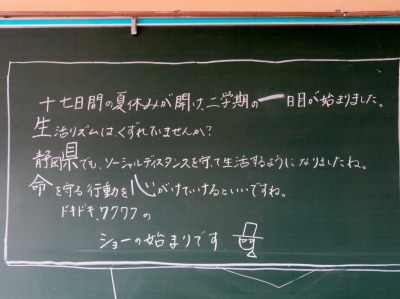 十七日間の夏休みが開け、二学期の一日目が始まりました。
生活リズムは、くずれていませんか？
静岡県でも、ソーシャルディスタンスを守って生活するようになりましたね。
命を守る行動を心がけていけるといいですね。
ドキドキ、ワクワクの
ショーの始まりです